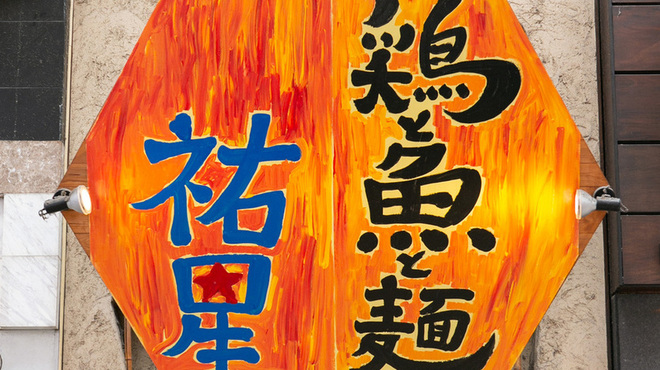 鶏と魚と麺
祐星